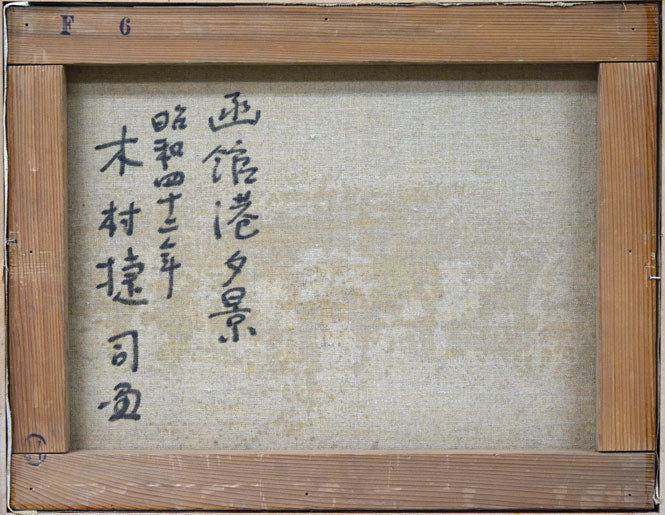 F 6
函館港夕景
昭和四十二年
木村捷司画